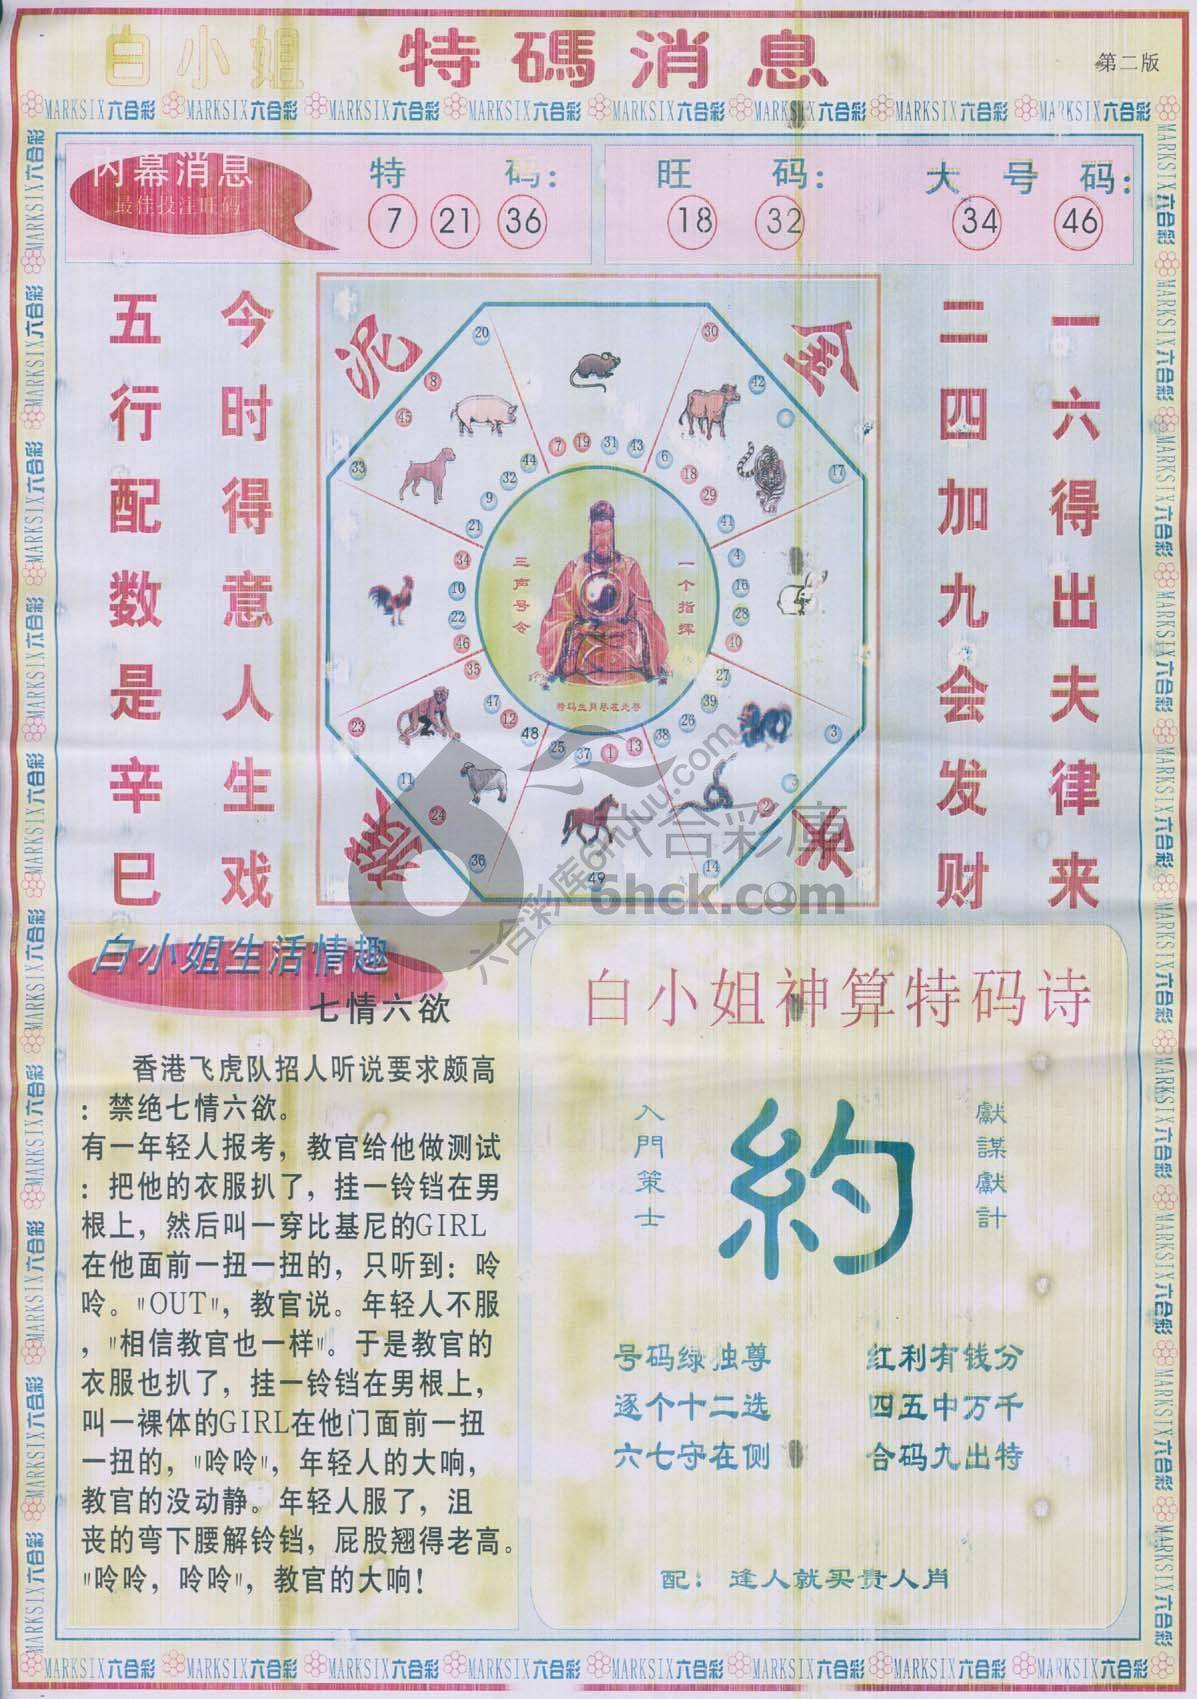 白小姐 特碼消息
第二版
MARKSIX六合彩 MARKSIX六合彩 MARKSIX六合彩 MARKSIX六合彩 MARKSIX六合彩 MARKSIX六合彩 MARKSIX六合彩 MARKSIX六合彩
内幕消息
最佳投注旺码
特 码:
7 21 36
旺 码:
18 32
大 号 码:
34 46
一六得出夫律来
二四加九会发财
今时得意人生戏
五行配数是辛巳
泥
20
30
8
42
45
33
17
44
7
19
31
43
6
32
18
9
29
21
41
34
4
10
16
22
28
46
40
35
27
47
39
12
26
48
38
25
37
1
13
23
3
11
24
2
36
14
49
一个指挥
三声号令
特码生肖尽在此卷
六合彩库
6hck.com
白小姐生活情趣
七情六欲
香港飞虎队招人听说要求颇高
:禁绝七情六欲。
有一年轻人报考，教官给他做测试
:把他的衣服扒了，挂一铃铛在男
根上，然后叫一穿比基尼的GIRL
在他面前一扭一扭的，只听到：呤
呤。"OUT"，教官说。年轻人不服
，"相信教官也一样"。于是教官的
衣服也扒了，挂一铃铛在男根上，
叫一裸体的GIRL在他门面前一扭
一扭的，"呤呤"，年轻人的大响，
教官的没动静。年轻人服了，沮
丧的弯下腰解铃铛，屁股翘得老高。
"呤呤，呤呤"，教官的大响！
白小姐神算特码诗
獻謀獻計
約
入門策士
号码绿独尊 红利有钱分
逐个十二选 四五中万千
六七守在侧 合码九出特
配：逢人就买贵人肖
MARKSIX六合彩 MARKSIX六合彩 MARKSIX六合彩 MARKSIX六合彩 MARKSIX六合彩 MARKSIX六合彩 MARKSIX六合彩 MARKSIX六合彩